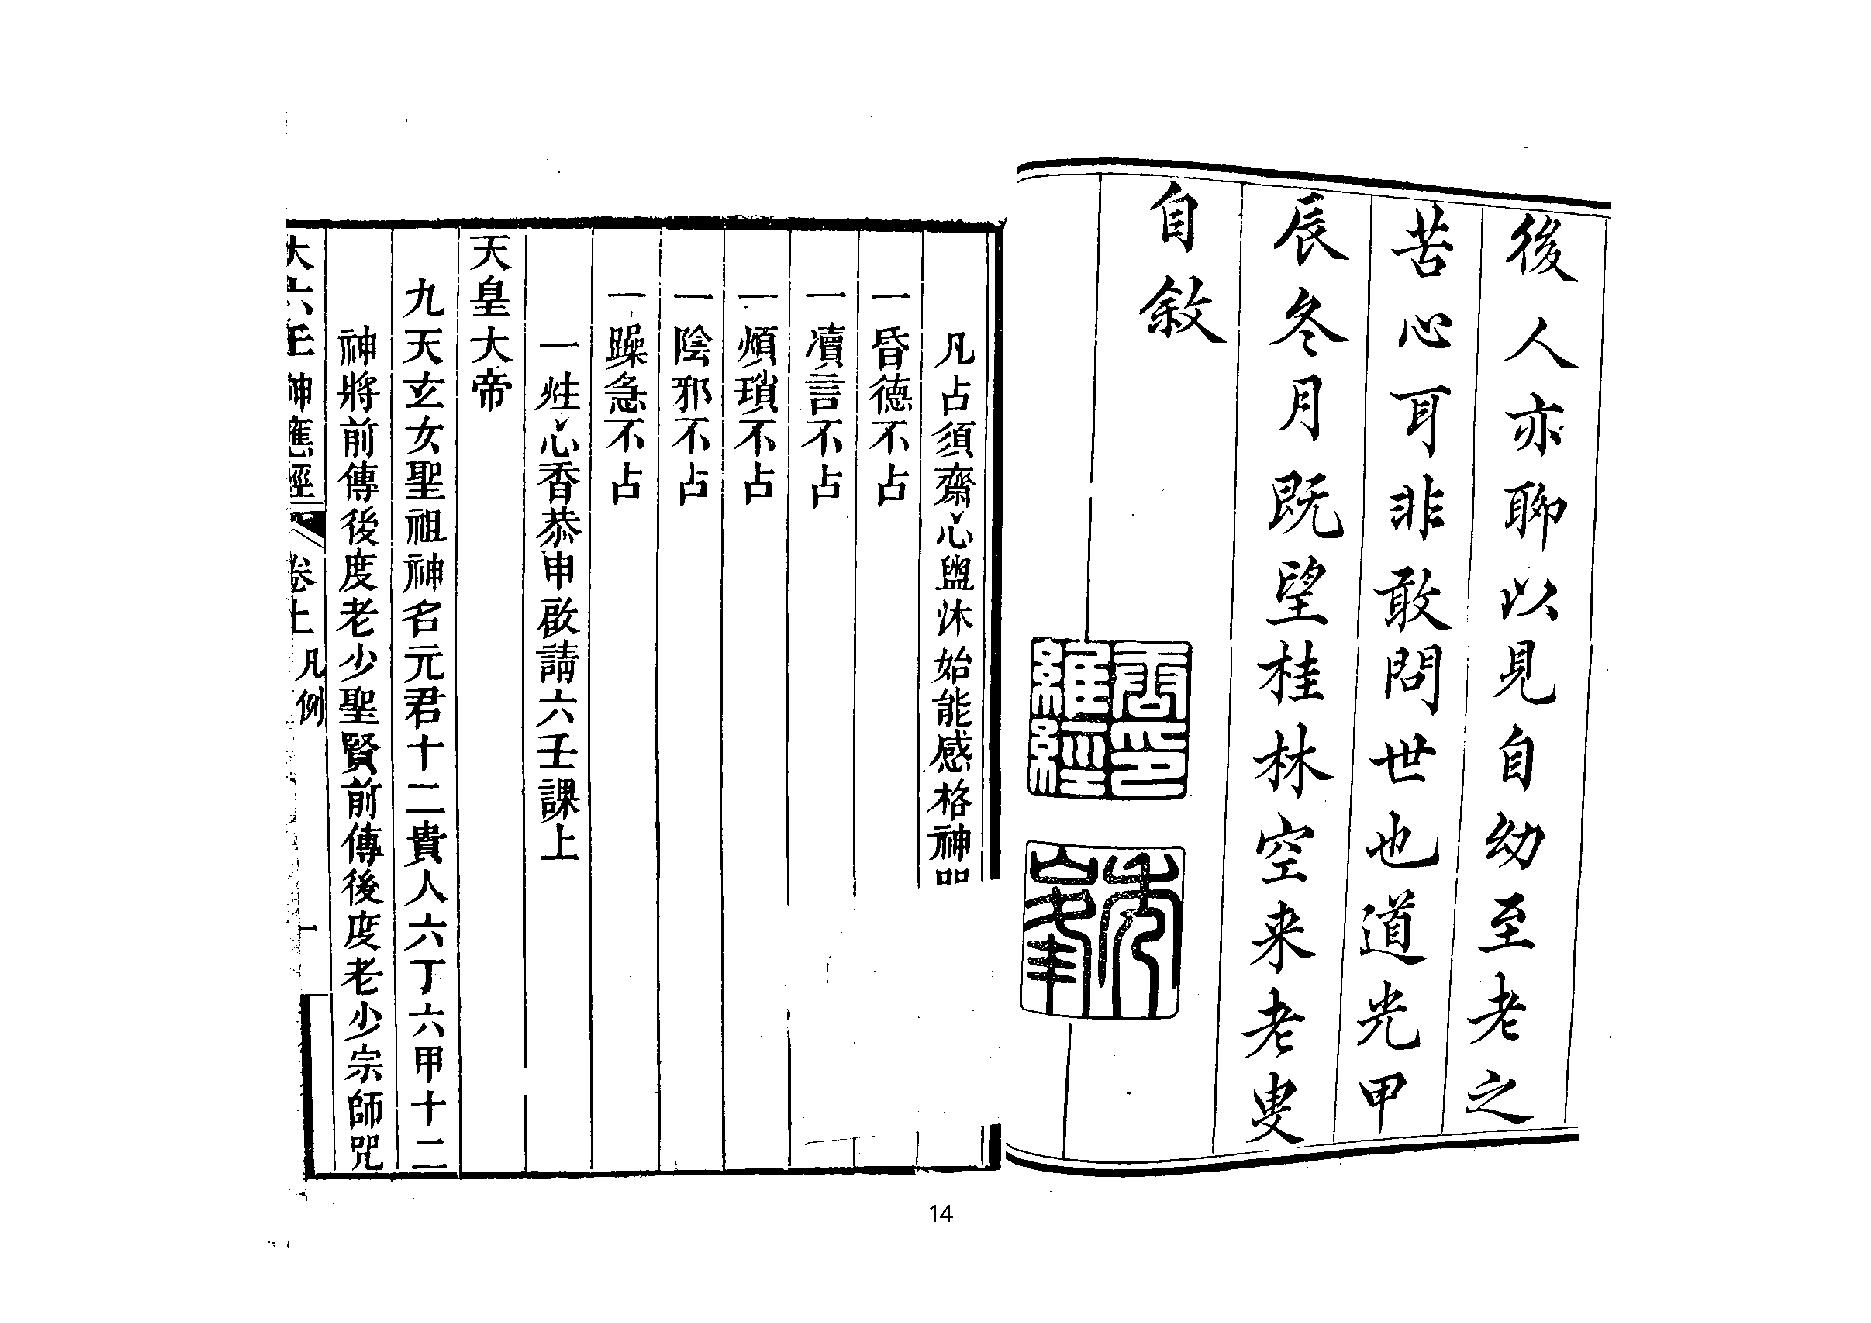 後人亦聊以見自幼至老之
苦心耳非敢問世也道光甲
辰冬月既望桂林空来老叟
自敘
凡占須齋心盥沐始能感格神
一昏德不占
一瀆言不占
一煩瑣不占
一陰邪不占
一躁急不占
一炷心香恭申啟請六壬課上
天皇大帝
九天玄女聖祖神名元君十二貴人六丁六甲十二
神將前傳後度老少聖賢前傳後度老少宗師咒
大六壬神應經 卷上 凡例 一
14